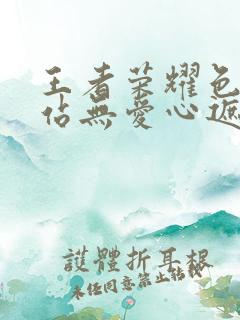 王者荣耀色
佔無愛心遮
護體折耳根
未经同意禁止转载